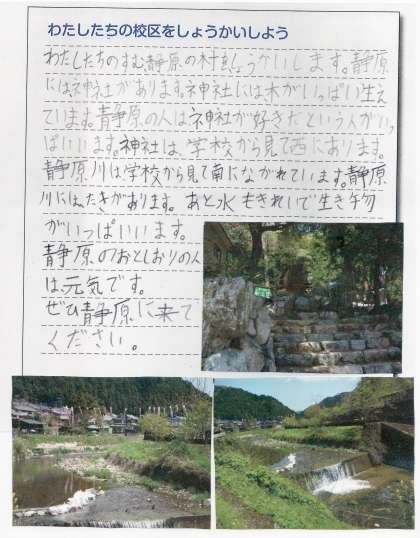 わたしたちの校区をしょうかいしよう
わたしたちのすむ静原の村をしょうかいします。静原
には神社があります。神社には木がいっぱい生え
ています。静原の人は神社が好きだという人がいっ
ぱいいます。神社は、学校から見て西にあります。
静原川は学校から見て南にながれています。静原
川には、たきがあります。あと水もきれいで生き物
がいっぱいいます。
静原のおとしおりの人
は元気です。
ぜひ静原に来て
ください。